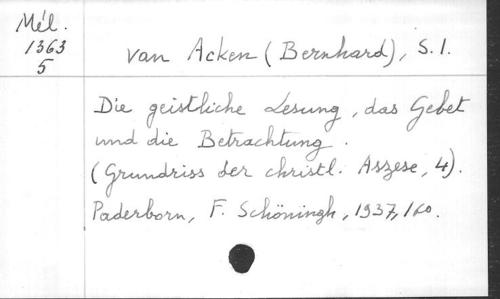 Mél.
1363
5
van Acken (Bernhard), S.I.
Die geistliche Lesung, das Gebet
und die Betrachtung.
(Grundriss der christl. Aszese, 4).
Paderborn, F. Schöningh, 1937,